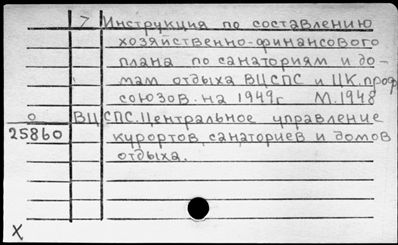 7 Инструкция по составлению
хозяйственно-финансового
плана по санаториям и до-
мам отдыха ВЦСПС и ЦК.проф
союзов. на 1949г М.1948
О ВЦСПС.Центральное управление
25860 курортов, санаториев и домов
отдыха.
X